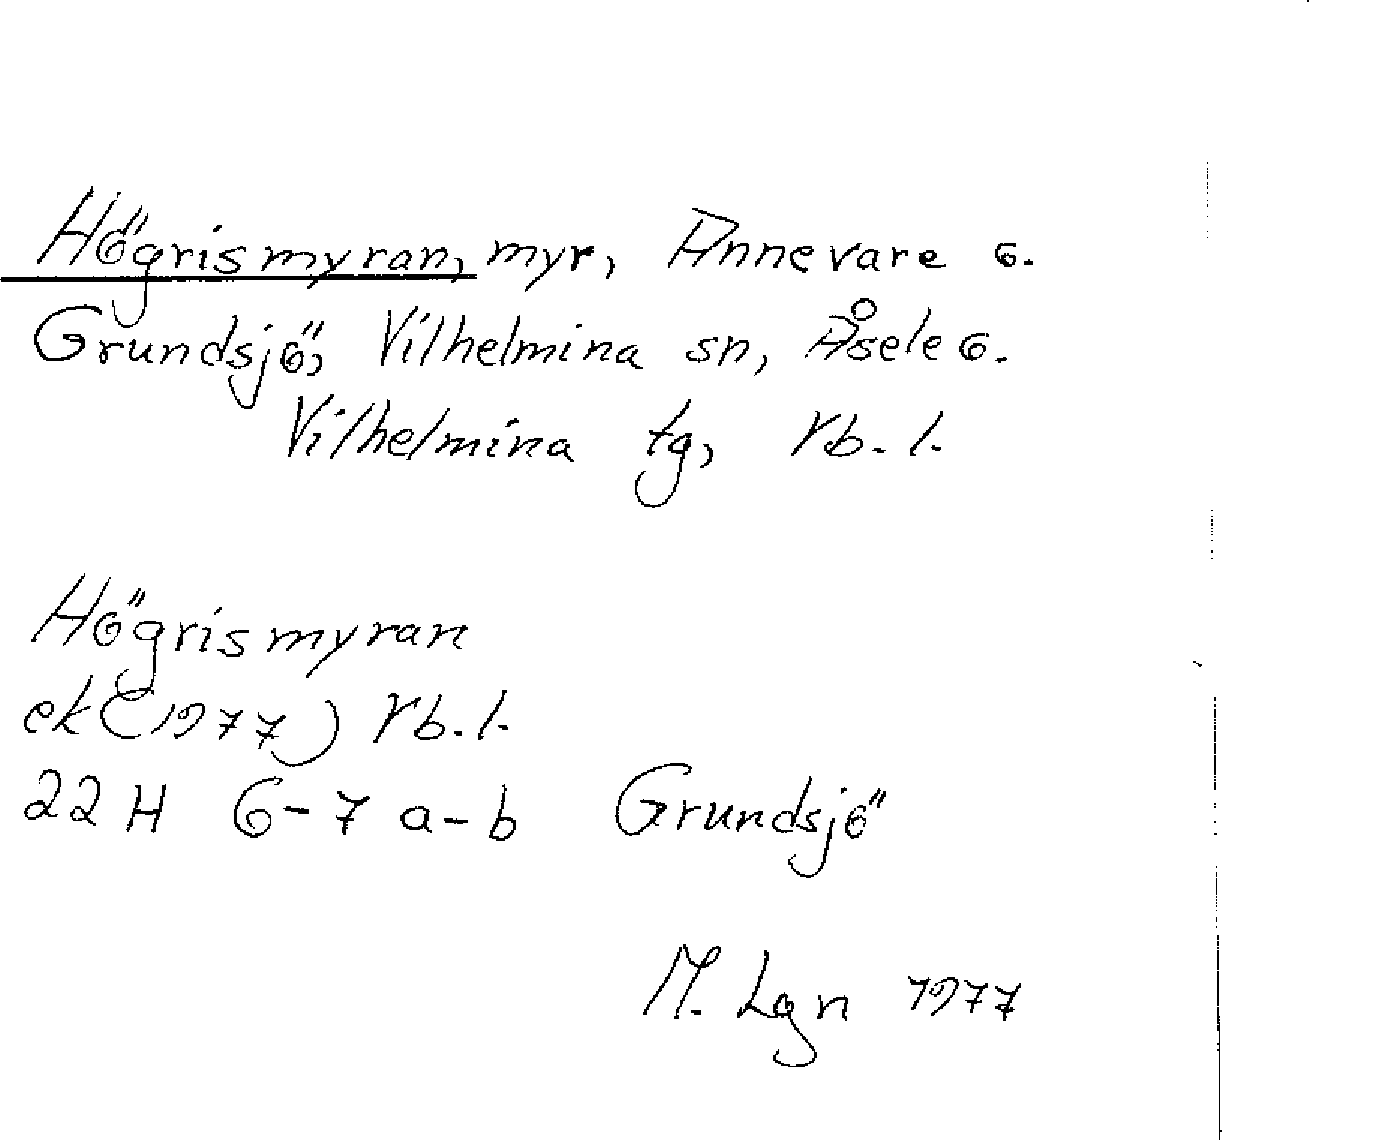 Högrismyran, myr, Annevare o.
Grundsjö, Vilhelmina sn, Åsele o.
Vilhelmina tg, Vb. l.
Högrismyran
ek (1977) Vb. l.
22 H 6-7 a-b Grundsjö
M. Lgn 1977